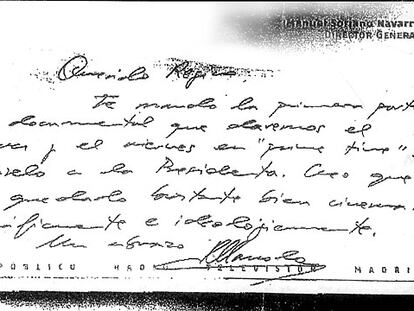 Manuel Soriano Navarr
DIRECTOR GENERA
Querido Regino,
Te mando la primera part
documental que daremos el
ves y el viernes en "prime time".
selo a la Presidenta. Creo que
quedado bastante bien cinema
ficamente e ideológicamente.
Un abrazo Manolo
PÚBLICO RADIO TELEVISIÓN MADRI